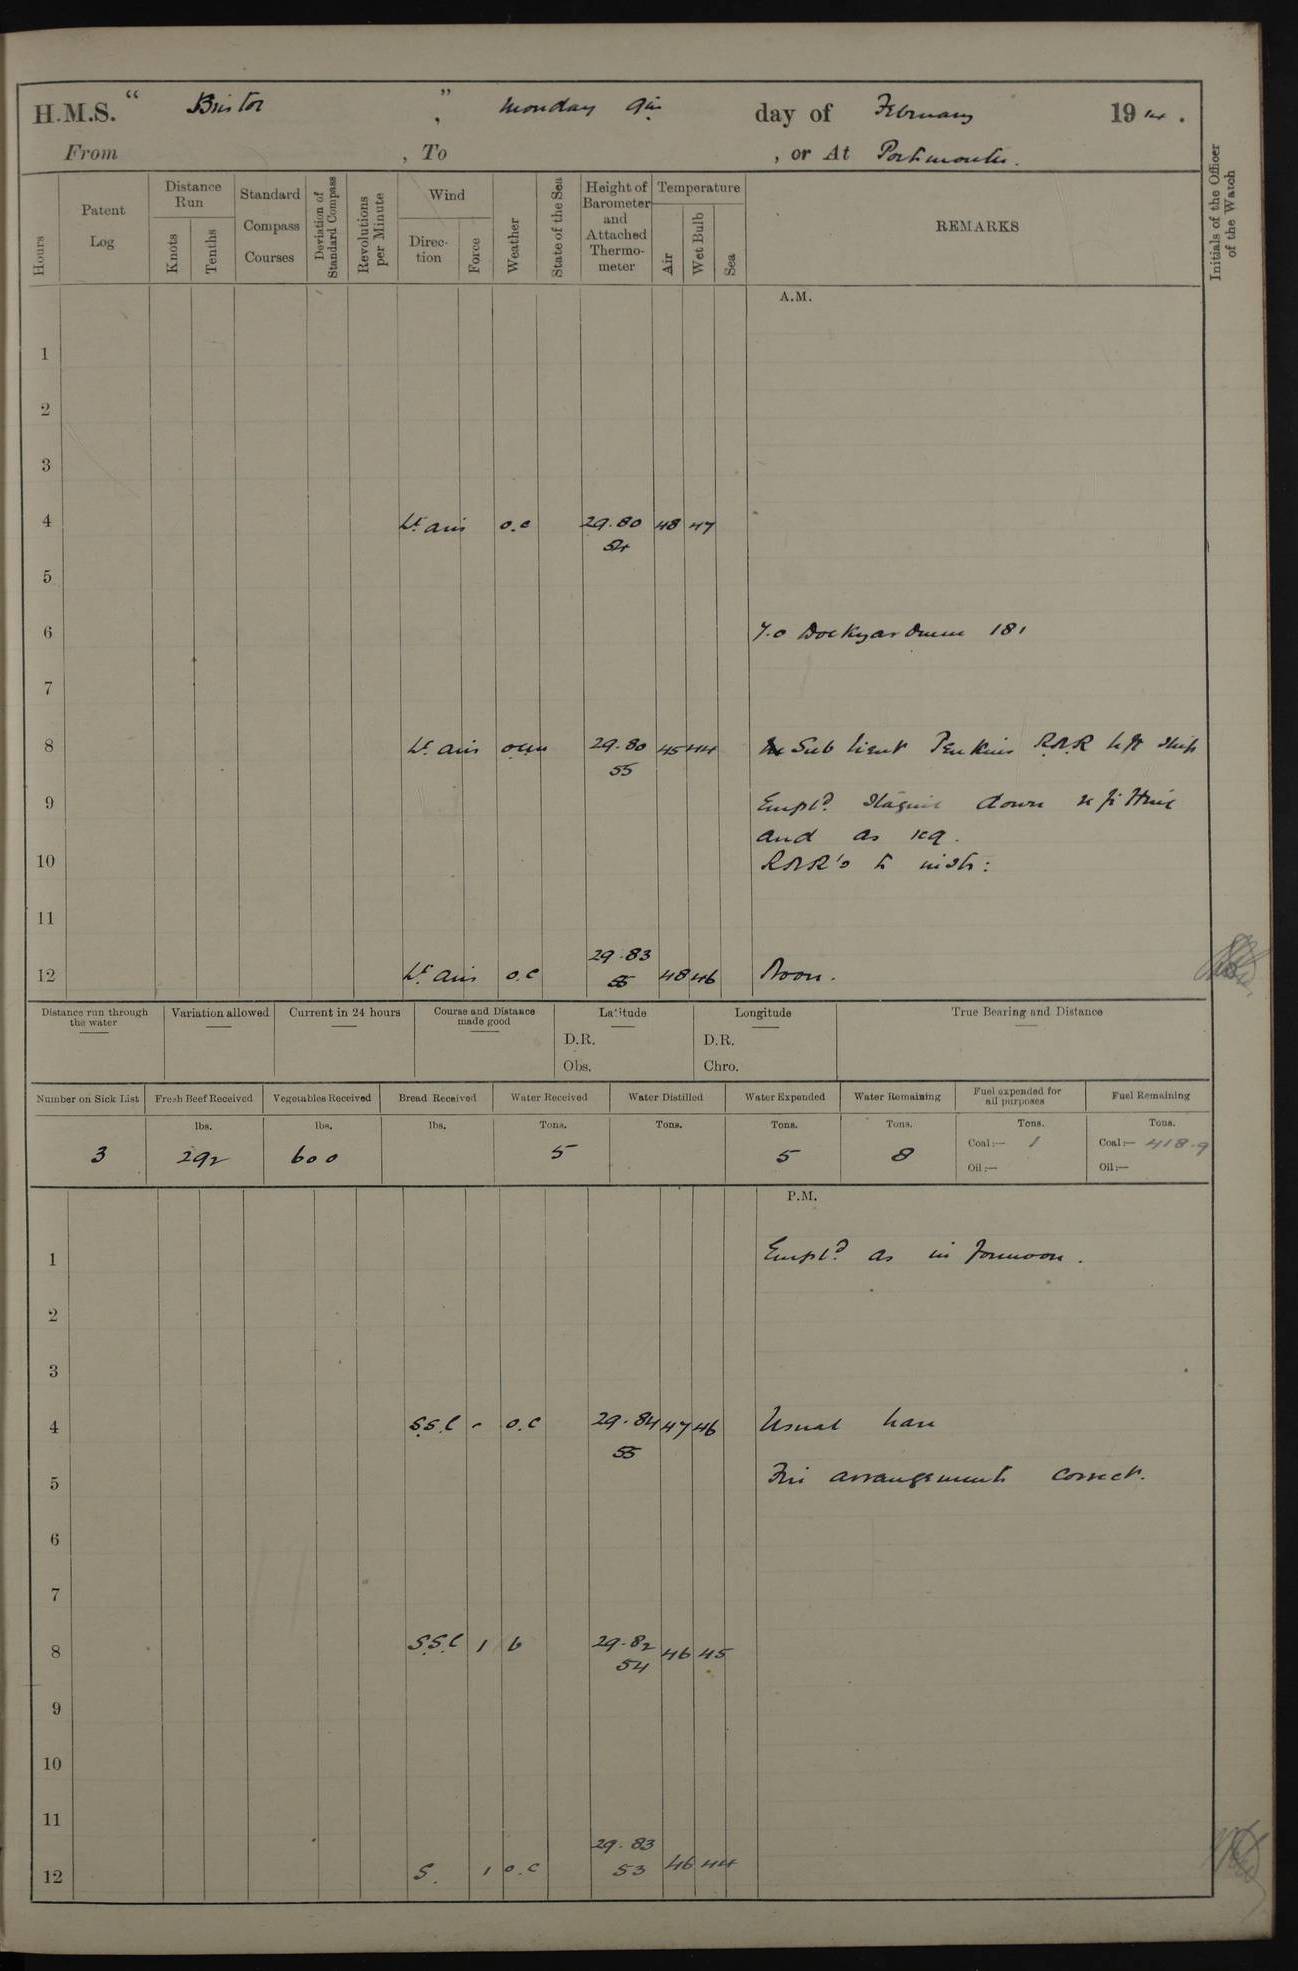 H.M.S. " Bristol ", Monday 9th day of February 1914.
From , To , or At Portsmouth.
Hours Patent Log Distance Run Knots Tenths Standard Compass Courses Deviation of Standard Compass Revolutions per Minute Wind Direction Force Weather State of the Sea Height of Barometer and Attached Thermometer Temperature Air Wet Bulb Sea REMARKS Initials of the Officer of the Watch
A.M.
1
2
3
4 Lt airs o.c 29.80 48 47
54
5
6 7.0 Dockyardmen 181
7
8 Lt airs 29.80 45 44 Sub Lieut Perkins R.N.R left ship
55
9 Empld. down refitting
and as req.
10 RNR's to instr:
11
29.83
12 Lt airs o.c 55 48 46 Noon.
Distance run through the water Variation allowed Current in 24 hours Course and Distance made good Latitude Longitude True Bearing and Distance
D.R. D.R.
Obs. Chro.
Number on Sick List Fresh Beef Received Vegetables Received Bread Received Water Received Water Distilled Water Expended Water Remaining Fuel expended for all purposes Fuel Remaining
lbs. lbs. lbs. Tons. Tons. Tons. Tons. Tons. Tons.
3 292 600 5 5 8 Coal:— 1 Coal:— 418.9
Oil:— Oil:—
P.M.
1 Empld. as in forenoon.
2
3
4 S.S.E - o.c 29.84 47 46 Usual
55
5 Fire arrangements correct.
6
7
8 S.S.E 1 b 29.82 46 45
54
9
10
11
29.83
12 S. 1 o.c 53 46 44